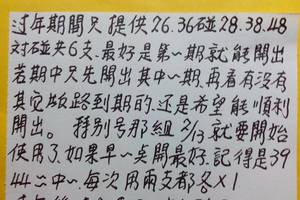 过年期間只提供26.36碰28.38.48
对碰共6支.最好是第一期就能開出
若期中只先開出其中一期.再看有没有
其它版路到期的.还是希望能顺利
開出。特别号那組2/13就要開始
使用了.如果早一点開最好.記得是39
44二中一.每次用兩支都各×1